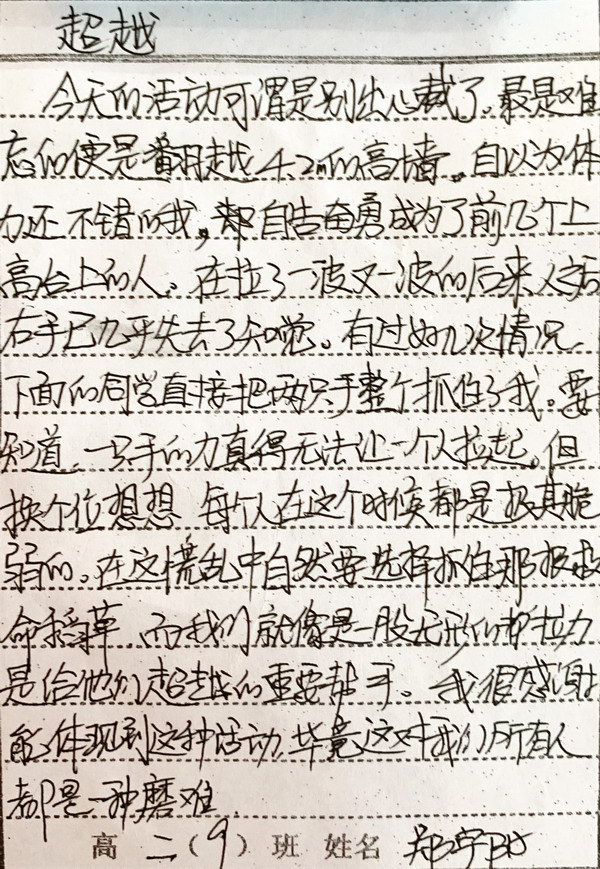 超越
今天的活动可谓是别出心裁了。最是难
忘的便是翻越4.2m的高墙。自以为体
力还不错的我，却自告奋勇成为了前几个上
高台上的人。在拉了一波又一波的后来人之后
右手已几乎失去了知觉。有过好几次情况，
下面的同学直接把两只手整个抓住了我。要
知道，一只手的力真得无法让一个人拉起。但
换个位想想，每个人在这个时候都是极其脆
弱的。在这慌乱中自然要选择抓住那根救
命稻草，而我们就像是一股无形的拉力
是给他们超越的重要帮手。我很感谢
能体现到这种活动，毕竟这对我们所有人
都是一种磨难
高二（9）班 姓名